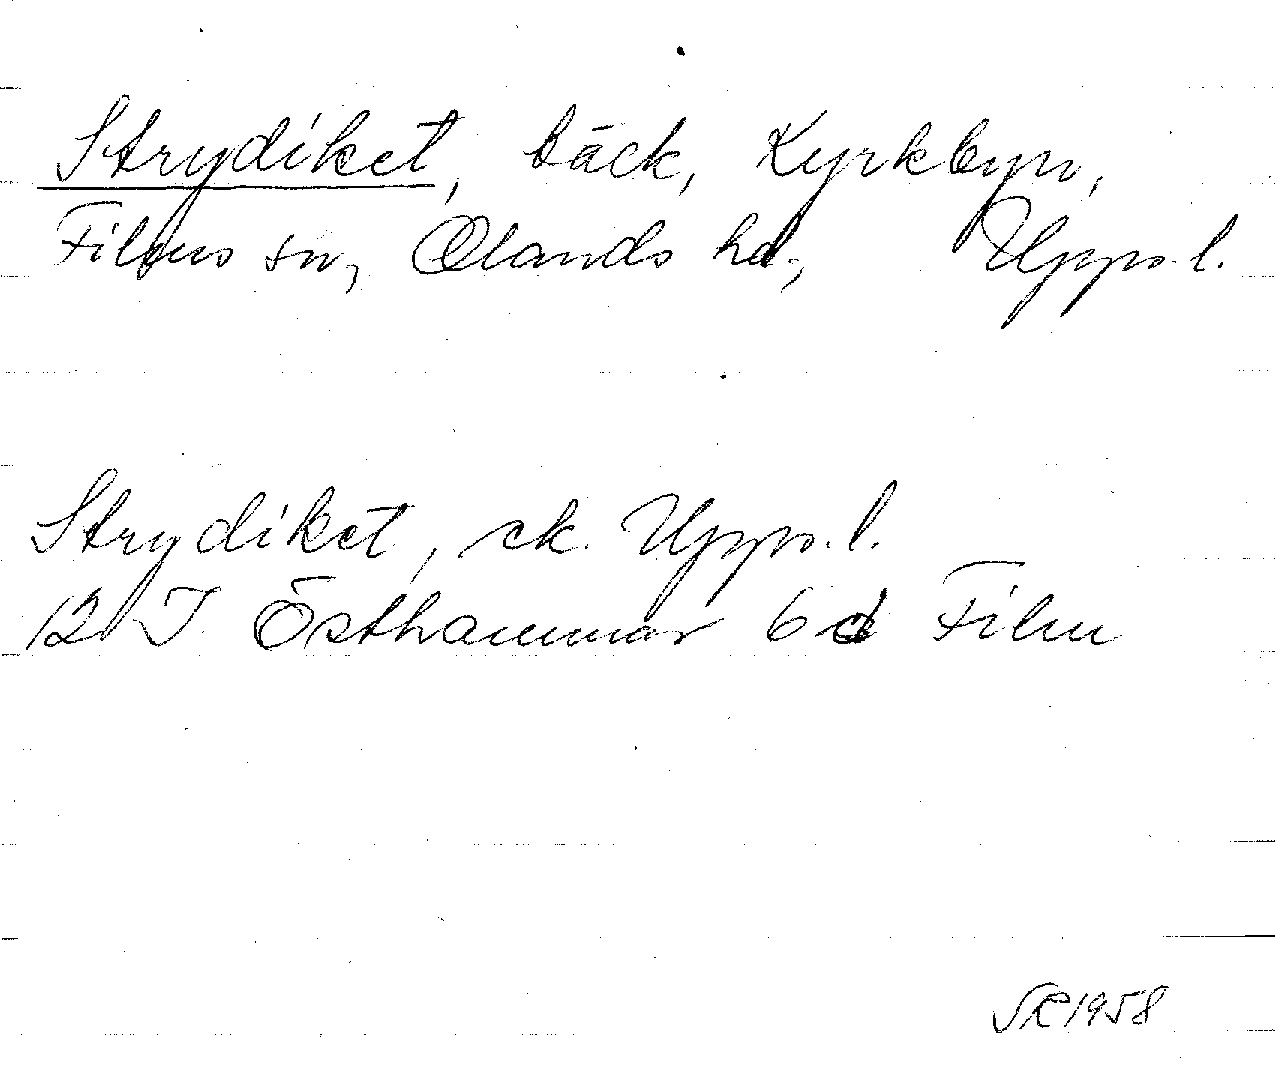 Strydiket, bäck, Kyrkbyn,
Films sn, Olands hd.,  Upps. l.
Strydiket, ek. Upps. l.
12 I Östhammar 6 d Film
1958